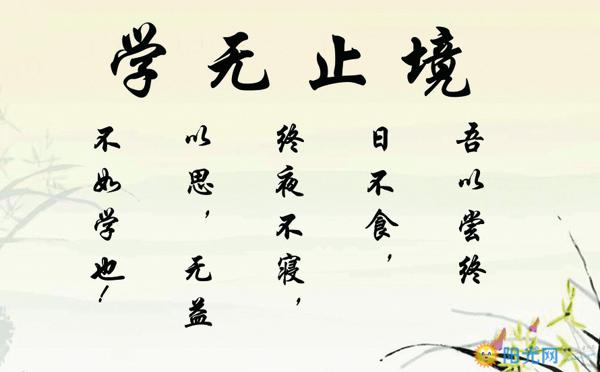 学无止境
吾以尝终
日不食，
终夜不寝，
以思，无益
不如学也！
阳光网